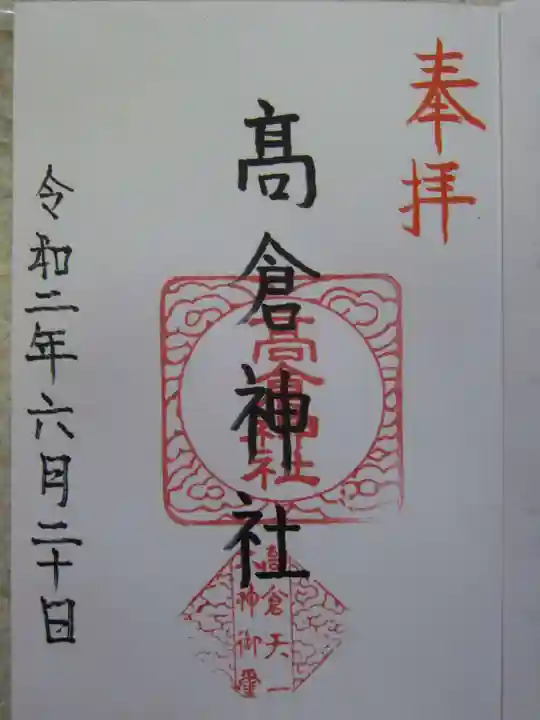 奉拝
髙倉神社
高倉神社
高倉天一
大神御璽
令和二年六月三十日